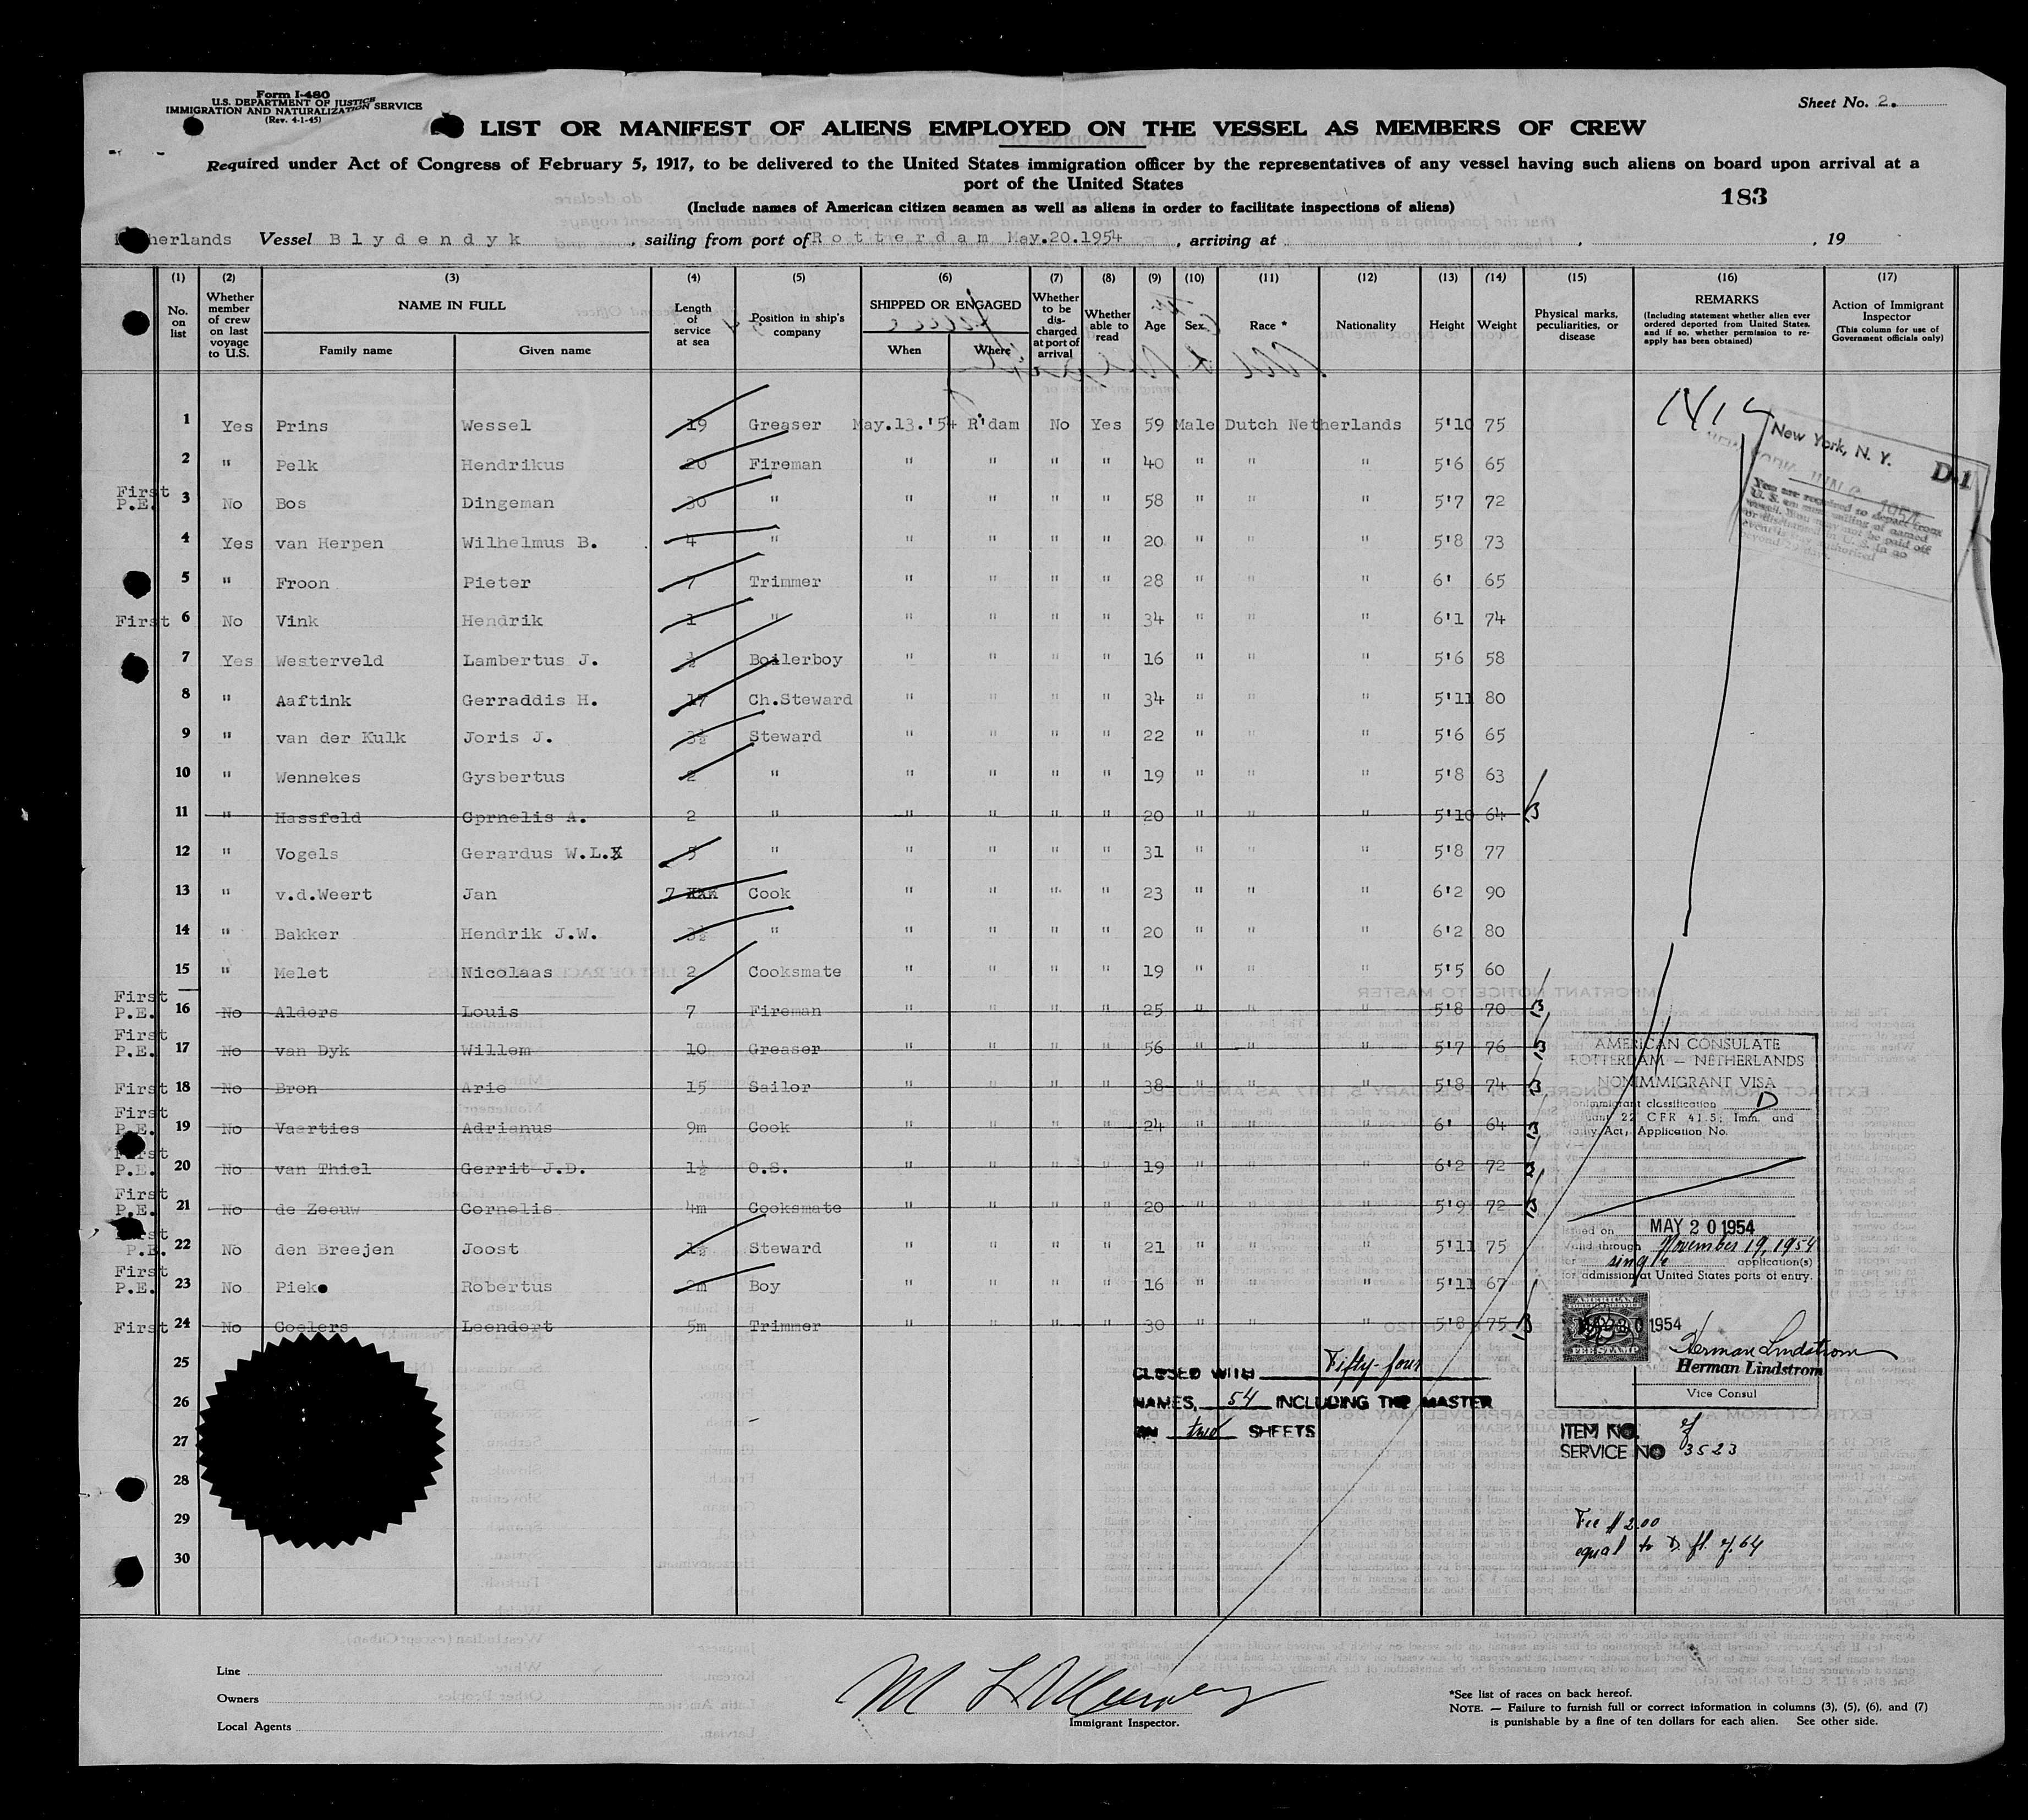 Form I-480
U.S. DEPARTMENT OF JUSTICE
IMMIGRATION AND NATURALIZATION SERVICE
(Rev. 4-1-45)
Sheet No. 2.
LIST OR MANIFEST OF ALIENS EMPLOYED ON THE VESSEL AS MEMBERS OF CREW
Required under Act of Congress of February 5, 1917, to be delivered to the United States immigration officer by the representatives of any vessel having such aliens on board upon arrival at a
port of the United States
183
(Include names of American citizen seamen as well as aliens in order to facilitate inspections of aliens)
herlands Vessel Blydendyk, sailing from port of Rotterdam May.20.1954, arriving at , , 19
(1) (2) (3) (4) (5) (6) (7) (8) (9) (10) (11) (12) (13) (14) (15) (16) (17)
No. on list
Whether member of crew on last voyage to U.S.
NAME IN FULL
Family name Given name
Length of service at sea
Position in ship's company
SHIPPED OR ENGAGED
When Where
Whether to be discharged at port of arrival
Whether able to read
Age Sex Race * Nationality Height Weight
Physical marks, peculiarities, or disease
REMARKS
(Including statement whether alien ever ordered deported from United States, and if so, whether permission to re-apply has been obtained)
Action of Immigrant Inspector
(This column for use of Government officials only)
1 Yes Prins Wessel 19 Greaser May.13.'54 R'dam No Yes 59 Male Dutch Netherlands 5'10 75
2 " Pelk Hendrikus 20 Fireman " " " " 40 " " " 5'6 65
First P.E. 3 No Bos Dingeman 30 " " " " " 58 " " " 5'7 72
4 Yes van Herpen Wilhelmus B. 4 " " " " " 20 " " " 5'8 73
5 " Froon Pieter 7 Trimmer " " " " 28 " " " 6' 65
First 6 No Vink Hendrik 1 " " " " " 34 " " " 6'1 74
7 Yes Westerveld Lambertus J. ½ Boilerboy " " " " 16 " " " 5'6 58
8 " Aaftink Gerraddis H. 17 Ch.Steward " " " " 34 " " " 5'11 80
9 " van der Kulk Joris J. 3½ Steward " " " " 22 " " " 5'6 65
10 " Wennekes Gysbertus 2 " " " " " 19 " " " 5'8 63
11 " Hassfeld Cprnelis A. 2 " " " " " 20 " " " 5'10 64
12 " Vogels Gerardus W.L. 5 " " " " " 31 " " " 5'8 77
13 " v.d.Weert Jan 7 Cook " " " " 23 " " " 6'2 90
14 " Bakker Hendrik J.W. 3½ " " " " " 20 " " " 6'2 80
15 " Melet Nicolaas 2 Cooksmate " " " " 19 " " " 5'5 60
First P.E. 16 No Alders Louis 7 Fireman " " " " 25 " " " 5'8 70
First P.E. 17 No van Dyk Willem 10 Greaser " " " " 56 " " " 5'7 76
First 18 No Bron Arie 15 Sailor " " " " 38 " " " 5'8 74
First P.E. 19 No Vaarties Adrianus 9m Cook " " " " 24 " " " 6' 64
First P.E. 20 No van Thiel Gerrit J.D. 1½ O.S. " " " " 19 " " " 6'2 72
First P.E. 21 No de Zeeuw Cornelis 4m Cooksmate " " " " 20 " " " 5'9 72
First P.E. 22 No den Breejen Joost 1½ Steward " " " " 21 " " " 5'11 75
First P.E. 23 No Pieke Robertus 2m Boy " " " " 16 " " " 5'11 67
First 24 No Coelers Leendert 5m Trimmer " " " " 30 " " " 5'8 75
25
26
27
28
29
30
New York, N. Y.
D-1
You are required to depart from
U. S. on
AMERICAN CONSULATE
ROTTERDAM — NETHERLANDS
NONIMMIGRANT VISA
Nonimmigrant classification D
22 CFR 41.5; Imm. and
Act, Application No.
Issued on MAY 20 1954
Valid through November 19, 1954
for single application(s)
for admission at United States ports of entry.
AMERICAN
FOREIGN SERVICE
FEE STAMP
1954
Herman Lindstrom
Herman Lindstrom
Vice Consul
CLOSED WITH Fifty-four
NAMES, 54 INCLUDING THE MASTER
ON two SHEETS
ITEM NO. 7
SERVICE NO 3523
Fee $ 2.00
equal to D. fl. 7.64
Line
Owners
Local Agents
Immigrant Inspector.
*See list of races on back hereof.
NOTE. — Failure to furnish full or correct information in columns (3), (5), (6), and (7)
is punishable by a fine of ten dollars for each alien. See other side.